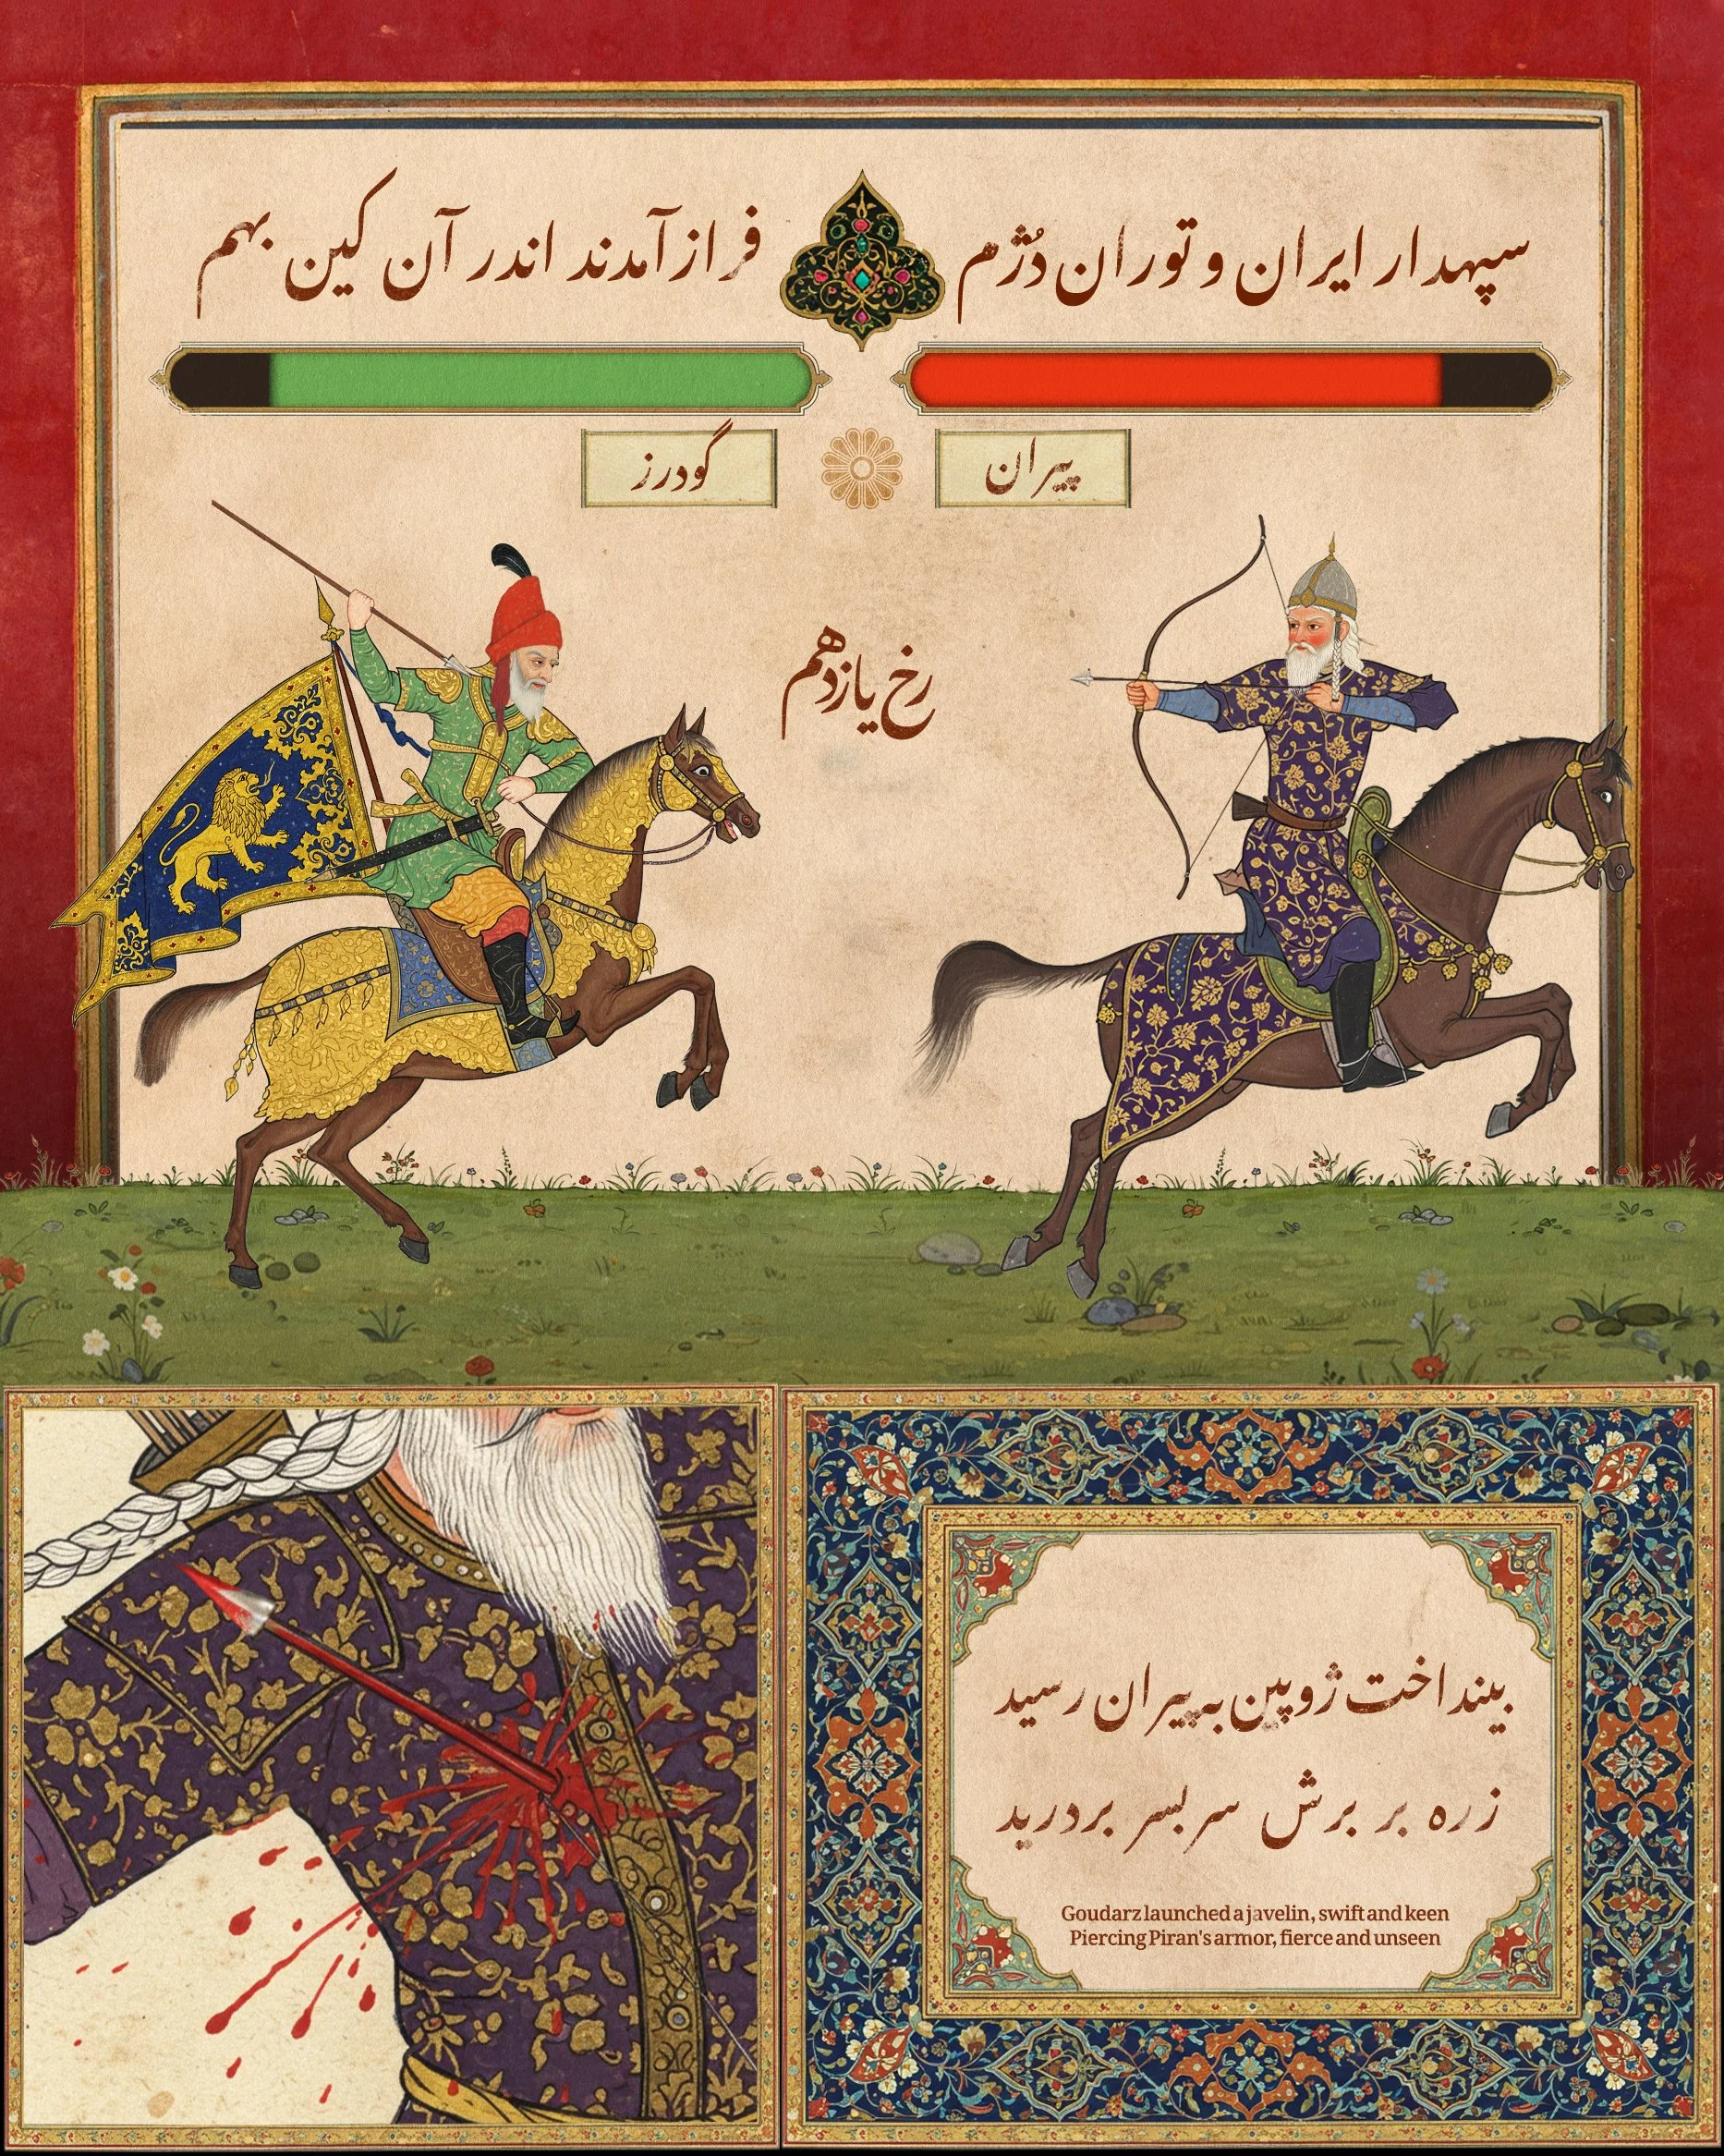 سپهدار ایران و توران دُژم
فراز آمدند اندر آن کین بهم
پیران
گودرز
رخ یازدهم
بینداخت ژوپین به پیران رسید
زره بر برش سر بسر بردرید
Goudarz launched a javelin, swift and keen
Piercing Piran's armor, fierce and unseen